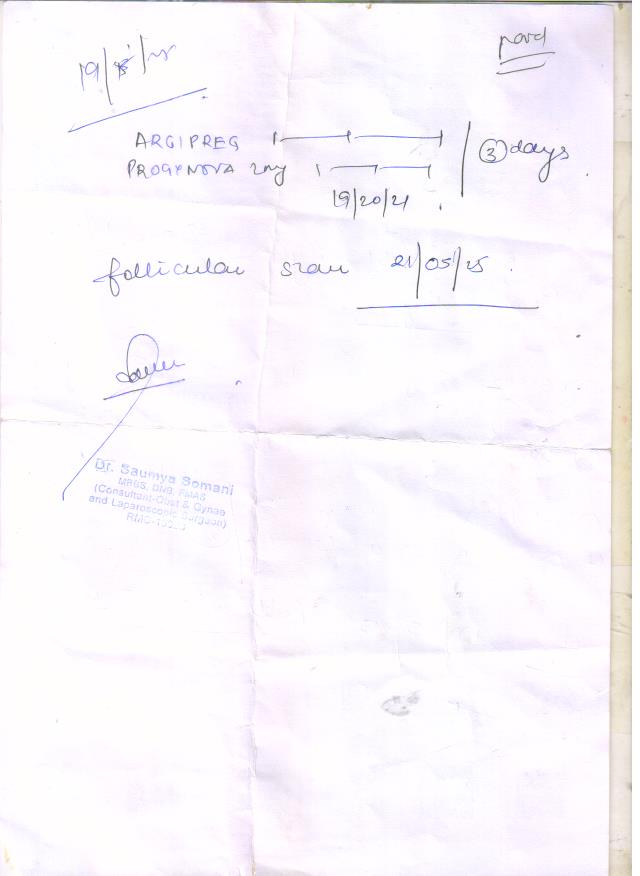 19/5/25
ARGIPREG |—|—| 3 days
PROGYNOVA 2mg |—|—|
19/20/21
follicular scan 21/05/25.
Dr. Saumya Somani
MBBS, DNB, FMAS
(Consultant-Obst & Gynae
and Laparoscopic Surgeon)